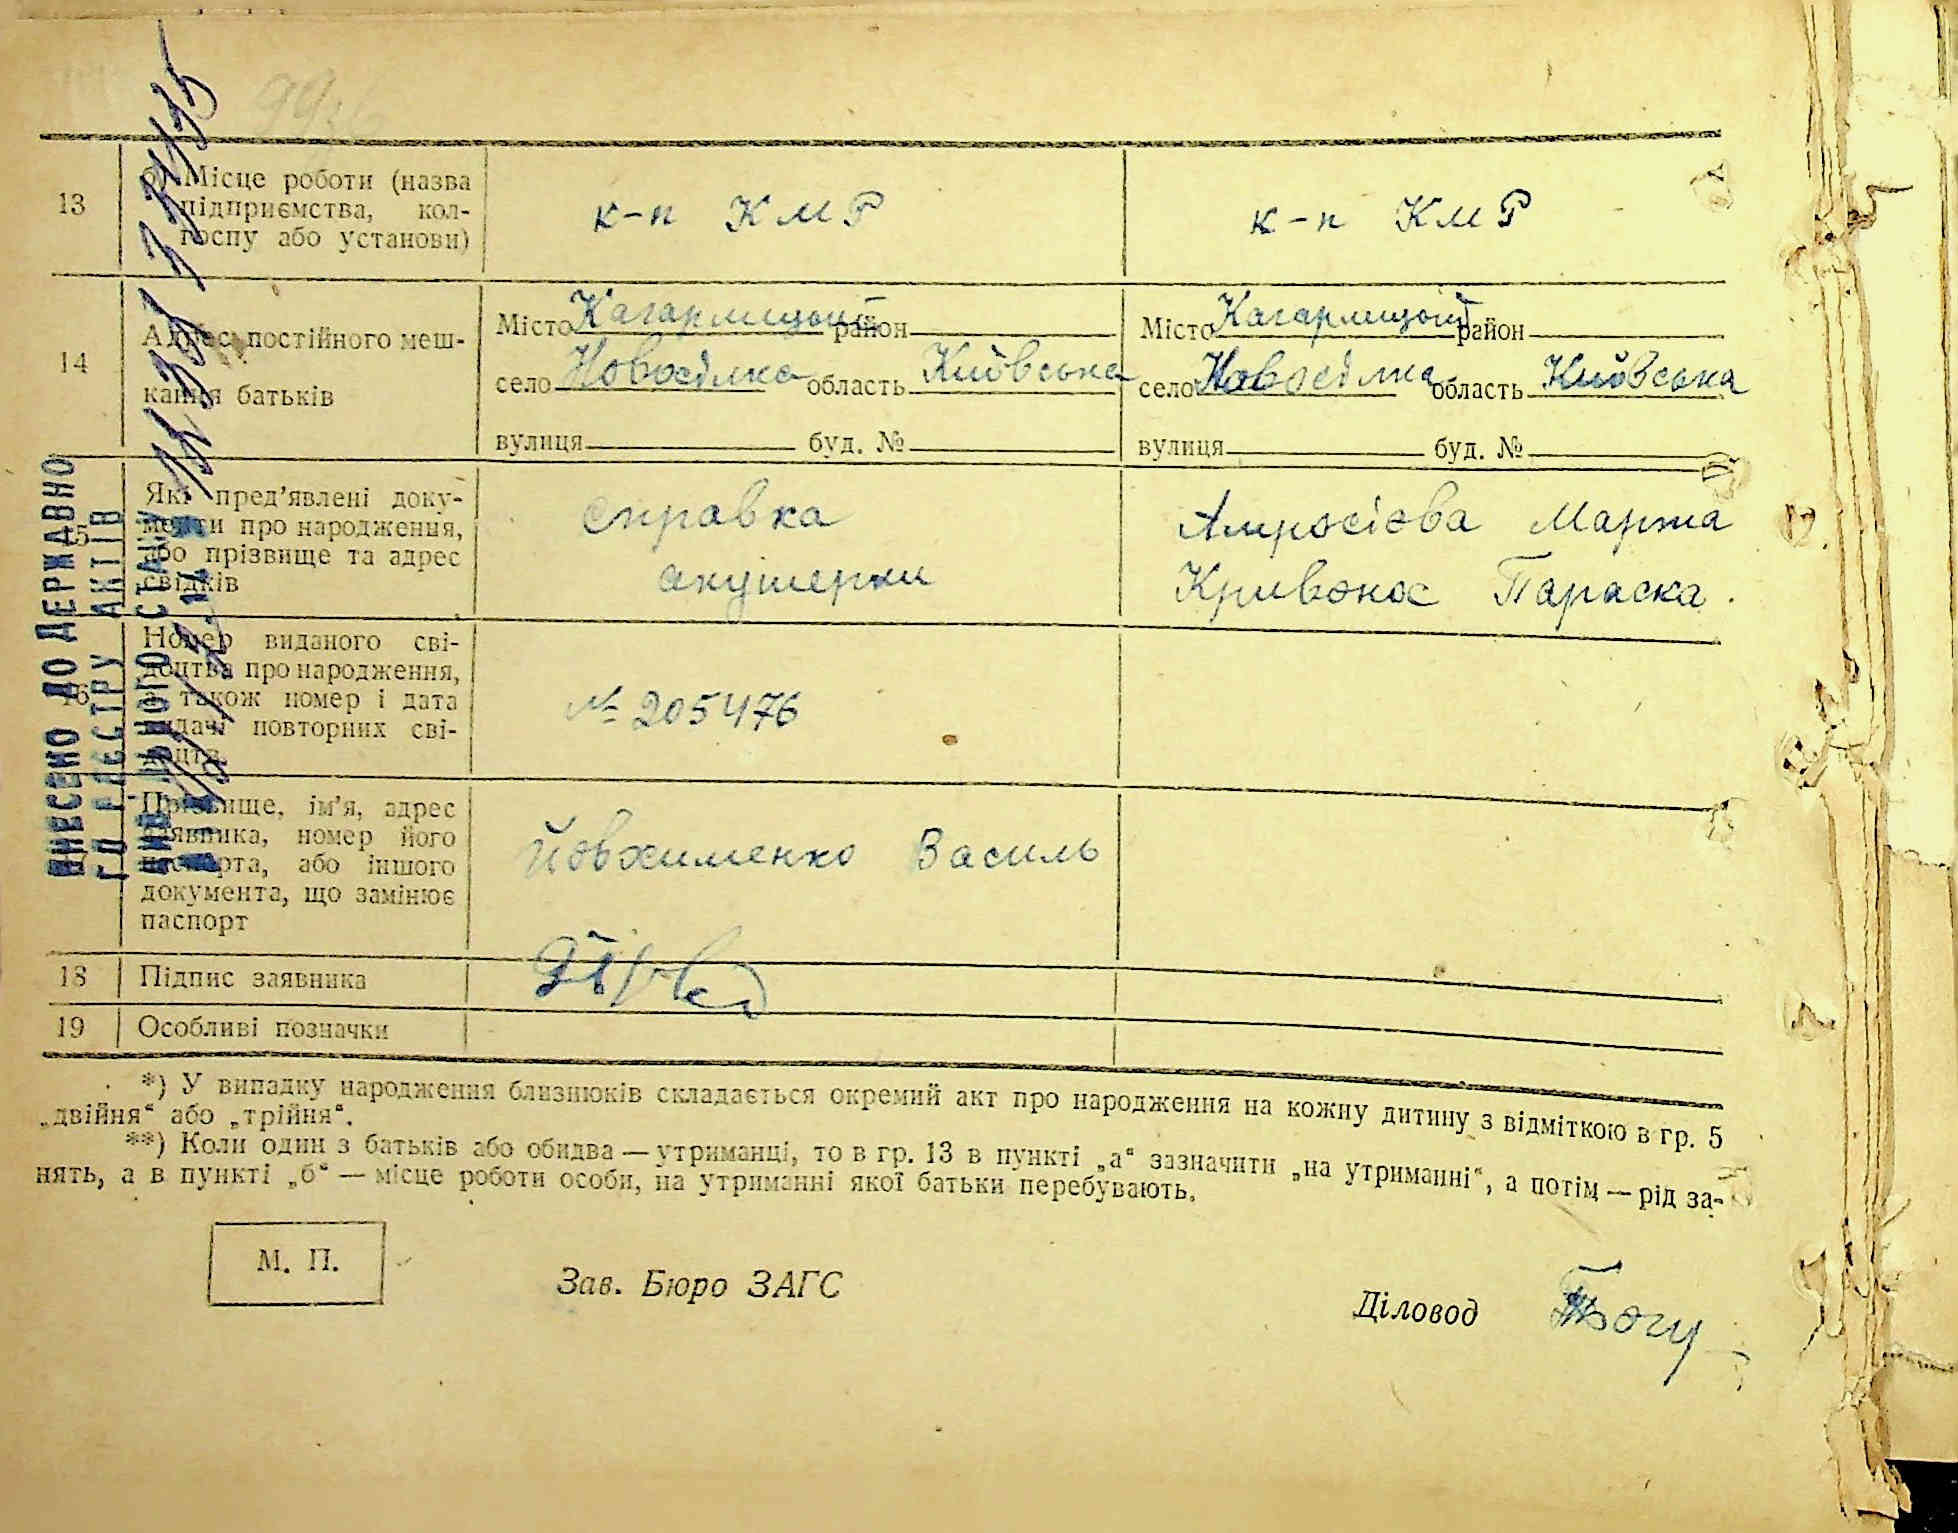 13
б) Місце роботи (назва
підприємства, кол-
госпу або установи)
к-п КМР
к-п КМР
14
Адрес постійного меш-
кання батьків
Місто Кагарлицький район
село Новосілка область Київська
вулиця буд. №
Місто Кагарлицький район
село Новосілка область Київська
вулиця буд. №
15
Які пред'явлені доку-
менти про народження,
або прізвище та адрес
свідків
справка
акушерки
Амросієва Марта
Кривонос Параска.
16
Номер виданого сві-
доцтва про народження,
а також номер і дата
видачі повторних сві-
доцтв
№ 205476
Прізвище, ім'я, адрес
заявника, номер його
паспорта, або іншого
документа, що замінює
паспорт
Йовхименко Василь
18
Підпис заявника
19
Особливі позначки
*) У випадку народження близнюків складається окремий акт про народження на кожну дитину з відміткою в гр. 5
„двійня“ або „трійня“.
**) Коли один з батьків або обидва — утриманці, то в гр. 13 в пункті „а“ зазначити „на утриманні“, а потім — рід за-
нять, а в пункті „б“ — місце роботи особи, на утриманні якої батьки перебувають.
М. П.
Зав. Бюро ЗАГС
Діловод
ВНЕСЕНО ДО ДЕРЖАВНО
ГО РЕЄСТРУ АКТІВ
ЦИВІЛЬНОГО СТАНУ